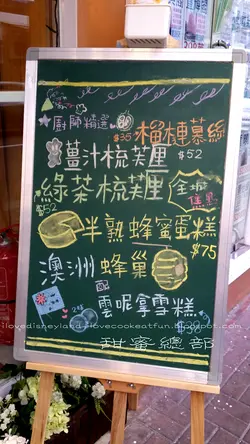 廚師精選
榴槤慕絲
$35
薑汁梳芙厘
$52
綠茶梳芙厘
$52
全城焦點
半熟蜂蜜蛋糕
$75
澳洲蜂巢
雲呢拿雪糕
$38
ilovedisneyland-ilovecookeatfun.blogspot.com
甜蜜總部